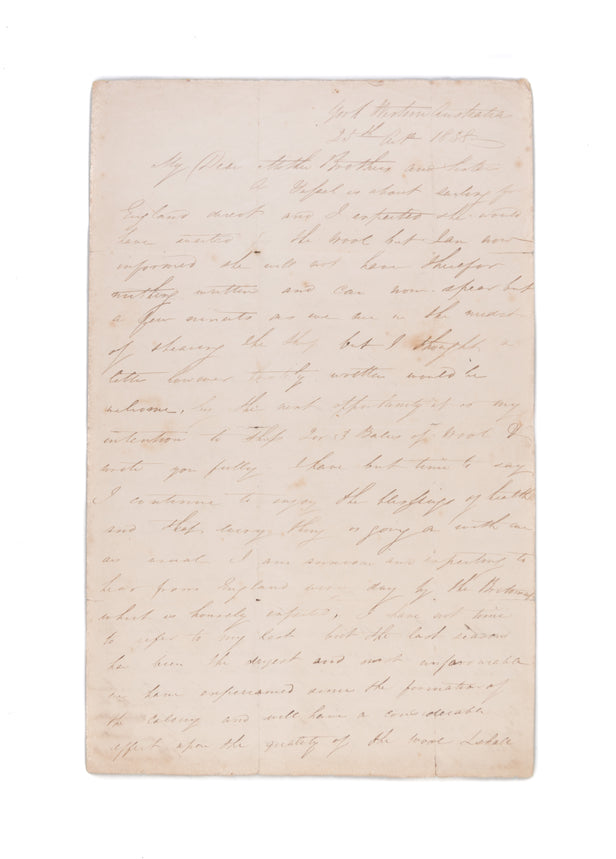 York Western Australia
25th Octr 1838
My Dear Mother Brothers and Sister
A Vessel is about sailing for
England direct and I expected she would
have waited for the Wool but I am now
informed she will not have therefore
nothing written and can now spear but
a few minutes as we are in the midst
of shearing the Sheep but I thought a
letter however written would be
welcome, by the next opportunity it is my
intention to Ship 2 or 3 Bales of Wool &
write you fully I have but time to say
I continue to enjoy the blessings of health
and that every thing is going on with me
as usual I am anxious and expecting to
hear from England every day by the
which is hourly expected, I have not time
to refer to my last but the last season
has been the dryest and most unfavourable
we have experienced since the formation of
the Colony and will have a considerable
effect upon the quality of the wool I shall